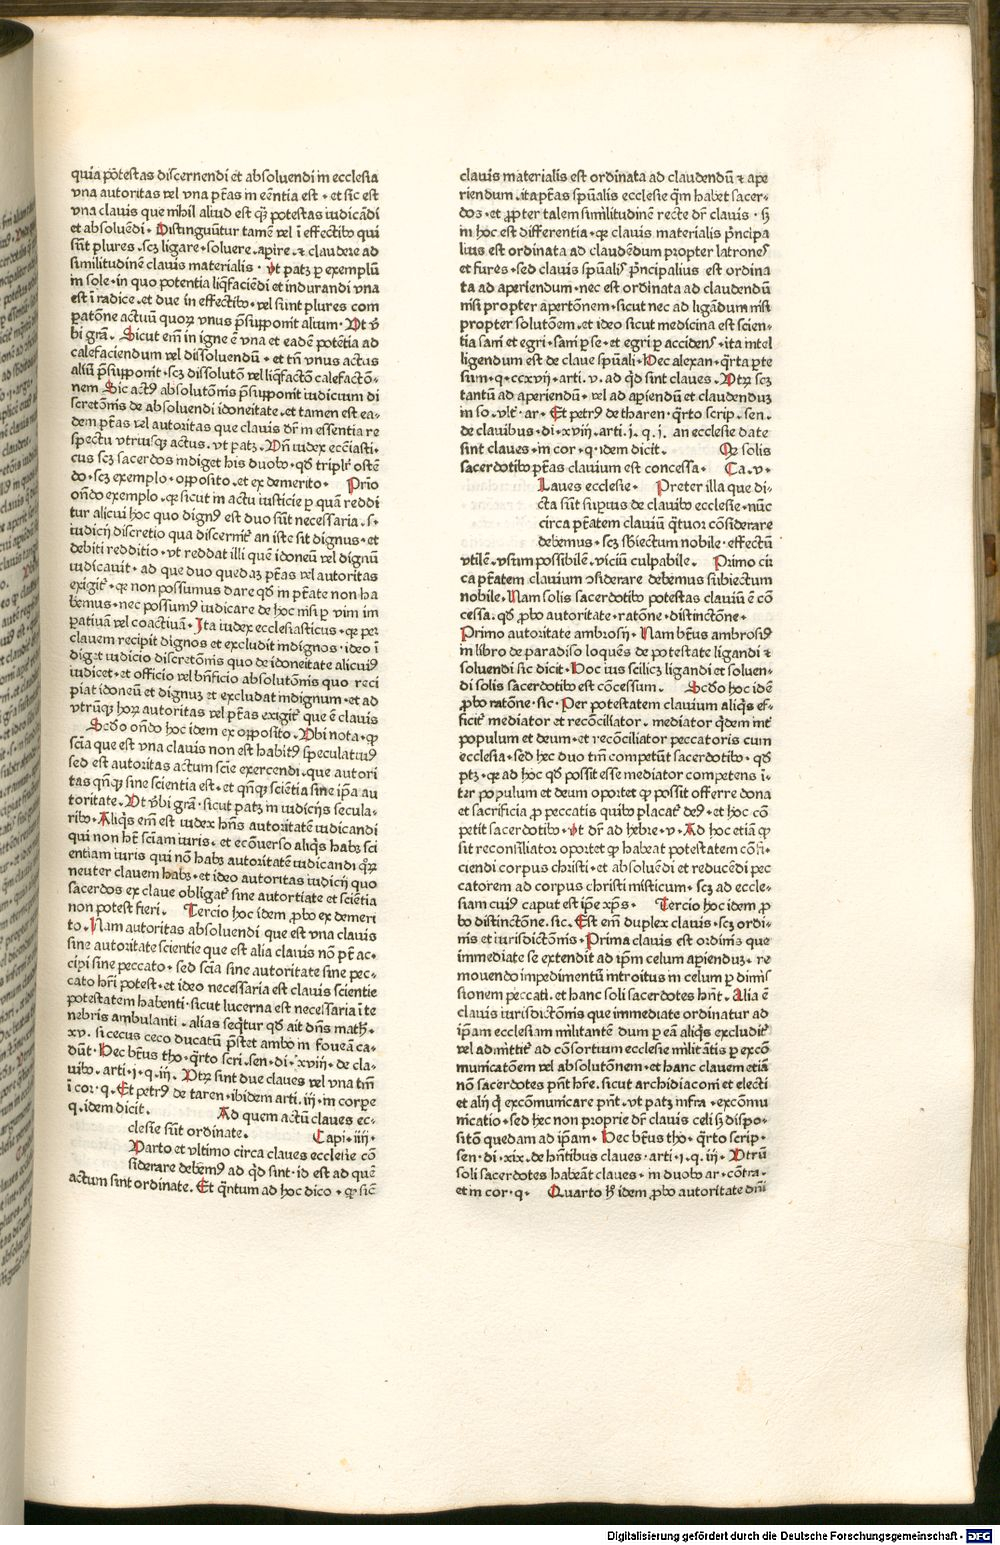 quia potestas discernendi et absoluendi in ecclesia
vna autoritas vel vna ptãs in eẽntia est · et sic est
vna clauis que nihil aliud est q̃ potestas iudicãdi
et absoluẽdi · Distinguũtur tamẽ vel ĩ effectibo qui
sũt plures . scz ligare · soluere . apire . ⁊ claudere ad
similitudinẽ clauis materialis · vt patz p exemplũ
in sole · in quo potentia liq̃faciẽdi et indurandi vna
est ĩ radice . et due in effectibo · vel sunt plures com
patõne actuũ quorz vnus p̃supponit alium · Vt v̾
bi grã . Sicut em̃ in igne ẽ vna et eadẽ potẽtia ad
calefaciendum vel dissoluendũ · et tñ vnus actus
aliũ p̃supponit · scz dissolutõ vel liq̃factõ calefactõ-
nem Sic act⁹ absolutõnis p̃supponit iudicium di
scretõnis de absoluendi idoneitate . et tamen est ea-
dem ptãs vel autoritas que clauis dr̃ in essentia re
spectu vtriusq; actus . vt patz . Dñ iudex eccĩasti-
cus scz sacerdos indiget his duobo · qđ triplr̃ ostẽ
do · scz exemplo · opposito . et ex demerito · Prĩo
oñdo exemplo . qz sicut in actu iusticie p quã reddi
tur alicui hoc quo dign⁹ est duo sũt necessaria . s ·
iudicij discretio qua discernit̃ an iste sit dignus · et
debiti redditio · vt reddat illi quẽ idoneũ vel dignũ
iudicauit · ad que duo quedaz ptãs vel autoritas
exigit̃ · qz non possumus dare qđ in p̃tate non ha
bemus · nec possum⁹ iudicare de hoc nisi p vim im
patiuã vel coactiuã · Ita iudex ecclesiasticus · qz per
clauem recipit dignos et excludit indignos · ideo ĩ
diget iudicio discretõnis quo de idoneitate alicui⁹
iudicet · et officio vel bñficio absolutõnis quo reci
piat idoneũ et dignuz et excludat indignum · et ad
vtrũq; horz autoritas vel ptãs exigit̃ que ẽ clauis
Scđo oñdo hoc idem ex opposito . Vbi nota · qp
scĩa que est vna clauis non est habit⁹ speculatiu⁹
sed est autoritas actum scĩe exercendi . que autori
tas qñq; sine scientia est · et qñq; sciẽtia sine ip̃a au
toritate . Vt v̾bi grã · sicut patz in iudicijs secula-
ribo · Aliq̃s em̃ est iudex hñs autoritatẽ iudicandi
qui non hẽt sciam iuris · et ecõuerso aliq̃s habz sci
entiam iuris qui nõ habz autoritatẽ iudicandi q̃rz
neuter clauem habz · et ideo autoritas iudicij quo
sacerdos ex claue obligat̃ sine autortiate et sciẽtia
non potest fieri . Tercio hoc idem ꝓbo ex demeri
to . Nam autoritas absoluendi que est vna clauis
sine autoritate scientie que est alia clauis nõ pt̃ ac ·
cipi sine peccato · sed scĩa sine autoritate sine pec-
cato hr̃i potest · et ideo necessaria est clauis scientie
potestatem habenti · sicut lucerna est necessaria ĩ te
nebris ambulanti . alias seq̃tur qđ ait dñs math ·
xv . si cecus ceco ducatũ p̃stet ambo in foueã ca-
dũt · Hec bt̃us tho · q̃rto scri . sen · di · xviij · de cla-
uibo · arti · i · q · iij . Vtrz sint due claues vel vna tm̃
ĩ cor · q . Et petr⁹ de taren · ibidem arti . iij · in corpe
q . idem dicit . Ad quem actũ claues ec-
clesie sũt ordinate . Capi · iiij ·
Varto et vltimo circa claues ecclesie cõ
siderare debem⁹ ad qđ sint · id est ad quẽ
actum sint ordinate . Et q̃ntum ad hoc dico · qp sic̃
clauis materialis est ordĩnata ad claudendũ ⁊ ape
riendum . ita ptãs spũalis ecclesie q̃m habet sacer-
dos · et ꝓpter talem similitudinẽ recte dr̃ clauis · s̃
in hoc est differentia · qz clauis materialis p̃ncipa
lius est ordinata ad claudẽdum propter latrones
et fures · sed clauis spũalis p̃ncipalius est ordina
ta ad aperiendum · nec est ordinata ad claudendũ
nisi propter apertõnem · sicut nec ad ligãdum nisi
propter solutõem . et ideo sicut medicina est scien-
tia sani et egri · sani p se · et egri p accidens · ita intel
ligendum est de claue spũali · Hec alexan · q̃rta pte
sum · q · ccxvij · arti . v . ad qđ sint claues . Vtrz scz
tantũ ad aperiendũ · vel ad apiendũ et claudenduz
in so . vlt̃ · ar · Et petr⁹ de tharen · q̃rto scrip . sen .
de clauibus · di · xviij . arti . j . q . j . an ecclesie date
sint claues · in cor · q · idem dicit . Qz solis
sacerdotibo ptãs clauium est concessa · Ca . v ·
Laues ecclesie · Preter illa que di-
cta sũt supius de clauibo ecclesie · nũc
circa ptãtem clauiũ q̃tuor cõsiderare
debemus · scz sbiectum nobile · effectũ
vtilẽ . vsum possibilẽ . viciũ culpabile . Primo cir
ca ptãtem clauium ꝯsiderare debemus subiectum
nobile · Nam solis sacerdotibo potestas clauiũ ẽ cõ
cessa . qđ ꝓbo autoritate · ratõne · distinctõne ·
Primo autoritate ambrosij · Nam bt̃us ambrosi⁹
in libro de paradiso loquẽs de potestate ligandi ⁊
soluendi sic dicit · Hoc ius scilicz ligandi et soluen-
di solis sacerdotibo est cõcessum . Scđo hoc idẽ
ꝓbo ratõne · sic · Per potestatem clauium aliq̃s ef-
ficit̃ mediator et recõciliator . mediator q̃dem int̃
populum et deum · et recõciliator peccatoris cum
ecclesia · sed hec duo tm̃ competũt sacerdotibo · qđ
ptz · qz ad hoc qđ possit esse mediator competens ĩ-
ter populum et deum oportet qp possit offerre dona
et sacrificia ꝓ peccatis quibo placat̃ de⁹ · et hoc cõ
petit sacerdotibo · vt dr̃ ad hebre · v · Ad hoc etiã qp
sit reconsiliator oportet qp habeat potestatem cõfi ·
ciendi corpus christi · et absoluẽdi et reducẽdi pec
catorem ad corpus christi misticum · scz ad eccle-
siam cui⁹ caput est ip̃e xp̃s · Tercio hoc idem ꝓ
bo distinctõne . sic . Est em̃ duplex clauis · scz ordi-
nis et iurisdictõnis · Prima clauis est ordinis que
immediate se extendit ad ip̃m celum apienduz · re
mouendo impedimentũ introitus in celum p dimis
sionem peccati . et hanc soli sacerdotes hñt . Alia ẽ
clauis iurisdictõnis que immediate ordinatur ad
ip̃am ecclesiam militantẽ dum p eã aliq̃s excludit̃
vel admittit̃ ad cõsortium ecclesie militãtis p excõ
municatõem vel absolutõnem · et hanc clauem etiã
nõ sacerdotes pñt hr̃e . sicut archidiaconi et electi
et alij q̃ excõmunicare pñt . vt patz infra . excõmu
nicatio · sed hec non proprie dr̃ clauis celi s̃ dispo-
sitõ quedam ad ip̃am . Hec bt̃us tho · q̃rto scrip ·
sen · di · xix . de hñtibus claues · arti · i · q . iij · Vtrũ
soli sacerdotes habeãt claues · in duobo ar · cõtra .
et in cor · q · Quarto h̃ idem ꝓbo autoritate dñi
Digitalisierung gefördert durch die Deutsche Forschungsgemeinschaft - DFG